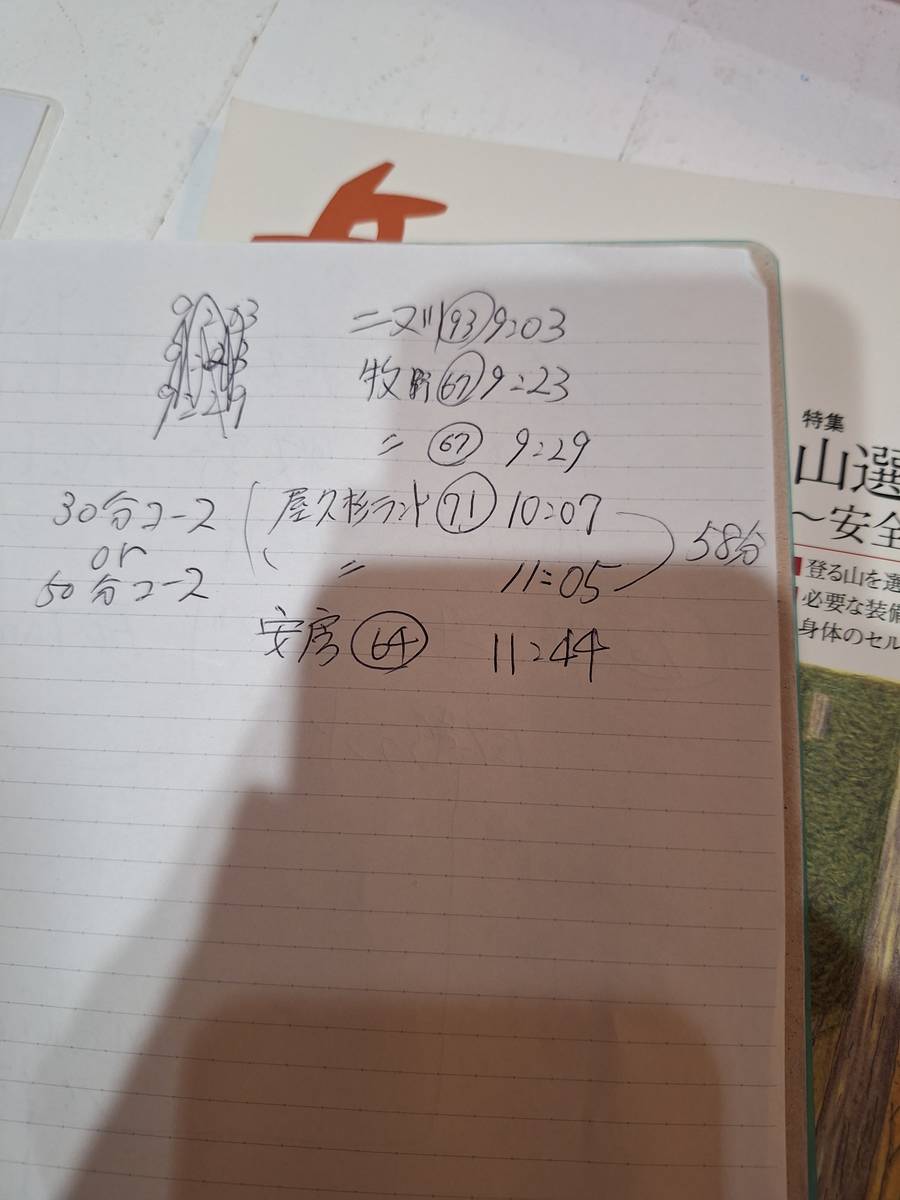 ニヌリ 93 9:03
牧野 67 9:23
〃 67 9:29
30分コース
or
50分コース
屋久杉ランド 71 10:07
〃 11:05
58分
安房 64 11:44
特集
山選
〜安全
登る山を選
必要な装備
身体のセル